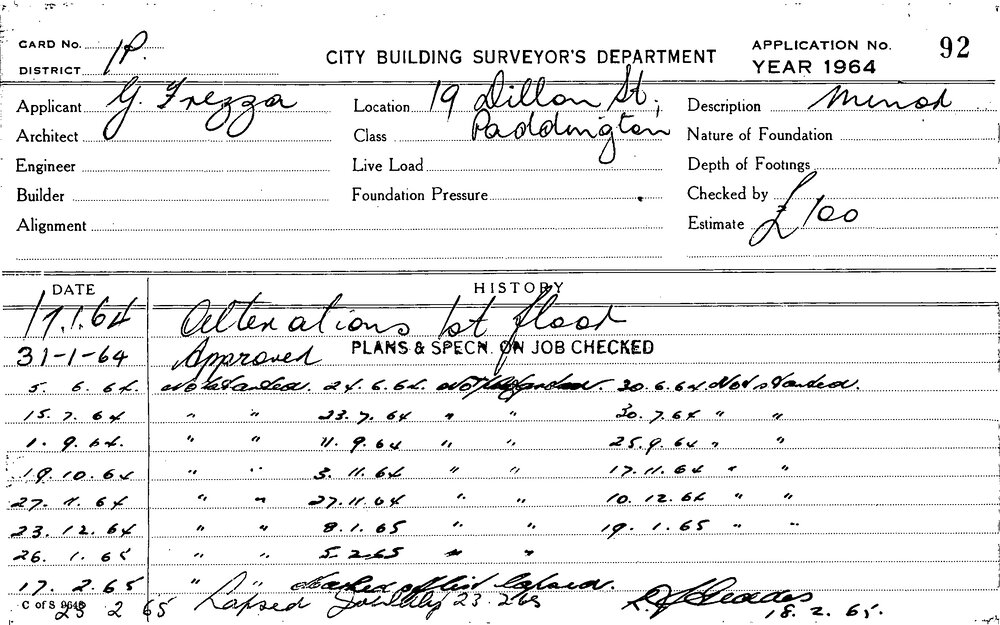 CARD No. 1P. CITY BUILDING SURVEYOR'S DEPARTMENT APPLICATION No. 92
DISTRICT YEAR 1964
Applicant G. Frezza Location 19 Dillon St, Description Minor
Architect Class Paddington Nature of Foundation
Engineer Live Load Depth of Footings
Builder Foundation Pressure Checked by
Alignment Estimate £100
DATE HISTORY
17.1.64 Alterations 1st floor
31-1-64 Approved PLANS & SPECN. ON JOB CHECKED
5. 6. 64. Not started. 24.6.64. Not started. 30.6.64 Not started.
15. 7. 64 " " 23.7.64 " " 30.7.64 " "
1. 9. 64. " " 11.9.64 " " 25.9.64 " "
19.10.64 " " 3.11.64 " " 17.11.64 " "
27.11.64 " " 27.11.64 " " 10.12.64 " "
23.12.64 " " 8.1.65 " " 19.1.65 " "
26. 1. 65 " " 5.2.65 " "
17. 2.65 " " Marked off list lapsed.
C of S 23 2 65 Lapsed 23.2.65 18.2.65.